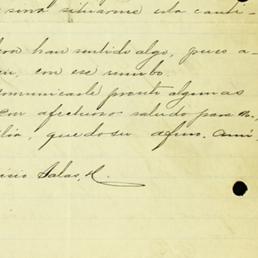 sirva situarme esta canti-
han sentido algo, pues a-
con ese rumbo.
comunicarle pronto algunas
con afectuoso saludo para su
quedo su afmo. ami-
Salas, R.